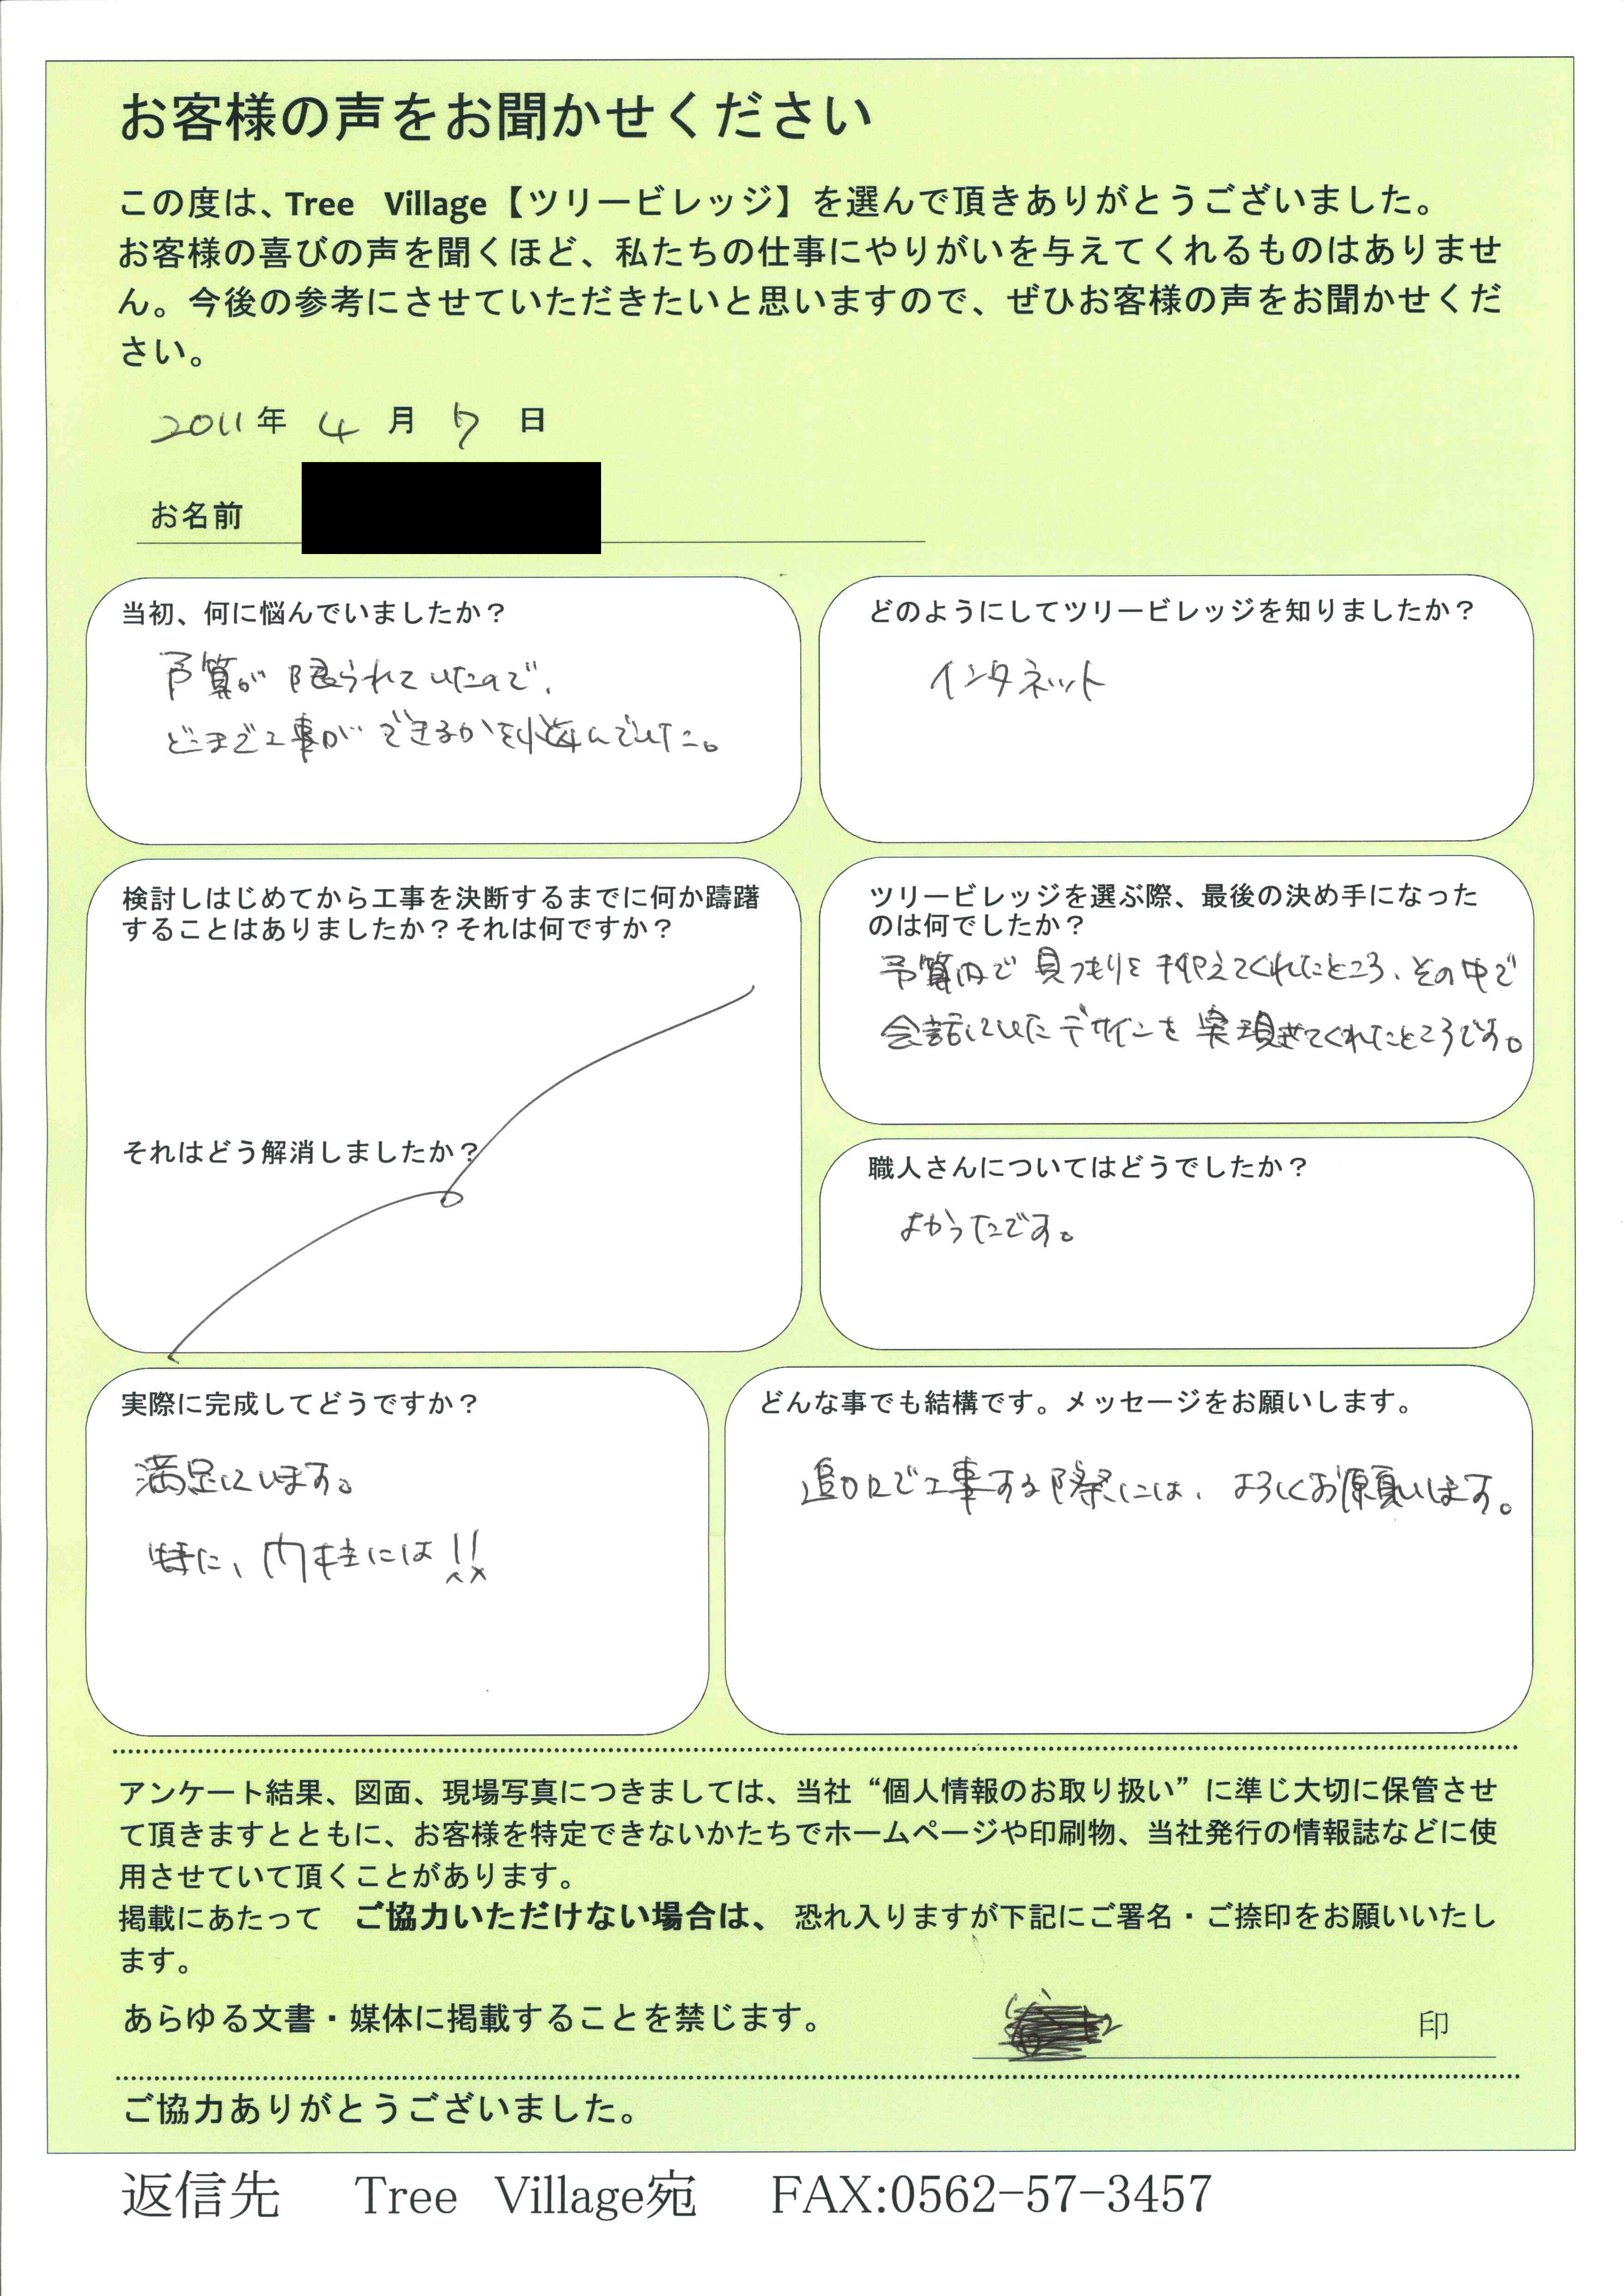 お客様の声をお聞かせください
この度は、Tree Village【ツリービレッジ】を選んで頂きありがとうございました。
お客様の喜びの声を聞くほど、私たちの仕事にやりがいを与えてくれるものはありませ
ん。今後の参考にさせていただきたいと思いますので、ぜひお客様の声をお聞かせくだ
さい。
2011年 4月 7日
お名前
当初、何に悩んでいましたか？
予算が限られていたので、
どこまで工事ができるかを悩んでいた。
どのようにしてツリービレッジを知りましたか？
インタネット
検討しはじめてから工事を決断するまでに何か躊躇
することはありましたか？それは何ですか？
それはどう解消しましたか？
ツリービレッジを選ぶ際、最後の決め手になった
のは何でしたか？
予算内で見つもりを抑えてくれたところ、その中で
会話していたデザインを実現させてくれたところです。
職人さんについてはどうでしたか？
よかったです。
実際に完成してどうですか？
満足しています。
特に、門柱には!!
どんな事でも結構です。メッセージをお願いします。
追加で工事する際には、よろしくお願いします。
アンケート結果、図面、現場写真につきましては、当社“個人情報のお取り扱い”に準じ大切に保管させ
て頂きますとともに、お客様を特定できないかたちでホームページや印刷物、当社発行の情報誌などに使
用させていて頂くことがあります。
掲載にあたって ご協力いただけない場合は、 恐れ入りますが下記にご署名・ご捺印をお願いいたし
ます。
あらゆる文書・媒体に掲載することを禁じます。 印
ご協力ありがとうございました。
返信先 Tree Village宛 FAX:0562-57-3457